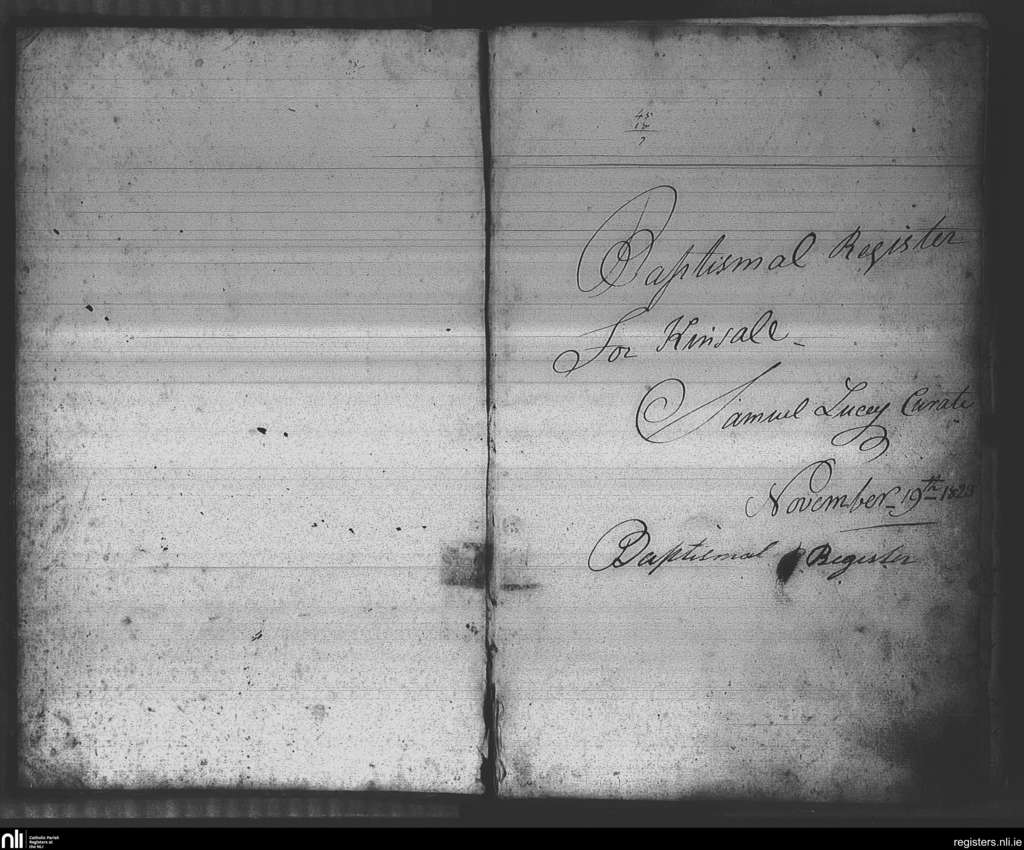 45
18
7
Baptismal Register
For Kinsale_
Samuel Lucey Curate
November_19th 1828
Baptismal Register
nli
Catholic Parish
Registers at
the NLI
registers.nli.ie